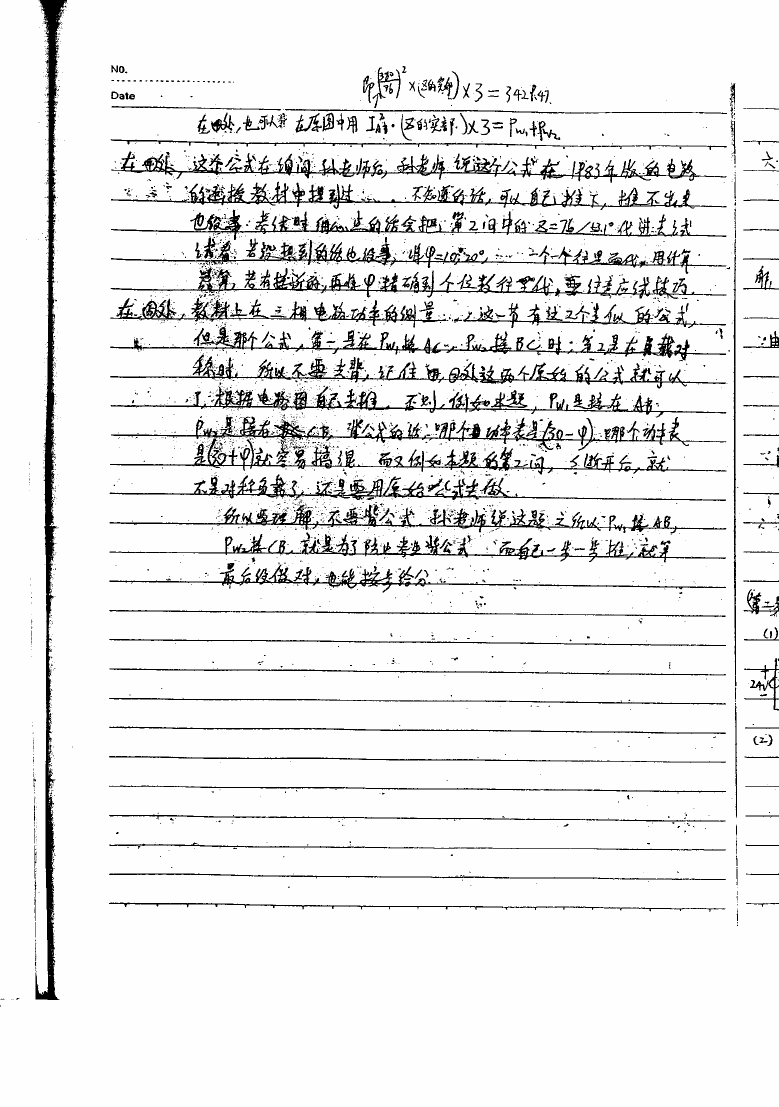 NO.
Date
即(380/76)²×(Z的实部)×3=3429.47
在 处,也可以 在原图中用 I ²·(Z的实部)×3=Pw₁+Pw₂
在 处,这条公式在组问孙老师后,孙老师说这个公式在1983年版的电路
的函授教材中提到过……。不知道的话,可以自己推下,推不出来
也没事,考试时 些的话会把:第2问中的Z=76/ 53.1°代进去试
试看;若没想到的话也没事,将φ=10°,20°,……一个一个往里面代,用计算
器算,若有接近的,再将φ精确到个位数往里代,要注意应试技巧.
在 处,教材上在三相电路功率的测量……,这一节有这2个类似的公式,
但是那个公式,第一,是在Pw₁接AC,Pw₂接BC,时;第2是在负载对
称时,所以不要去背,记住 这两个原始的公式就可以
了,根据电路图自己去推,否则,例如本题,Pw₁是接在AB,
Pw₂是接在CB,背公式的话:哪个功率表是(30-φ),哪个功率表
是(30+φ)就容易搞混.而又例如本题的第2问,S断开后,就
不是对称负载了,还是要用原始公式去做.
所以要理解,不要背公式,孙老师说这题之所以Pw₁接AB,
Pw₂接CB,就是为了防止考生背公式 而自己一步一步推,就算
最后没做对,也能按步给分.
六
解,
由
(第二
(1)
24V
(2)